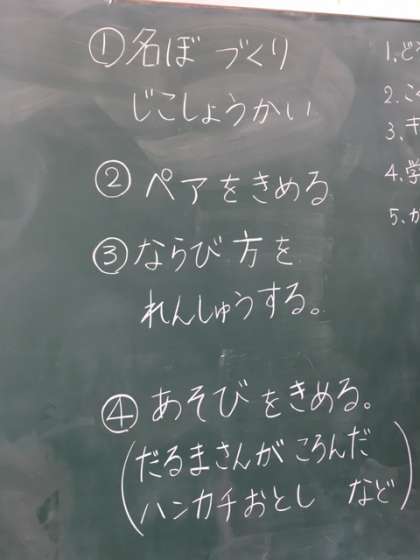 ①名ぼ づくり
じこしょうかい
②ペアをきめる
③ならび方を
れんしゅうする。
④あそびをきめる。
(だるまさんが ころんだ
ハンカチおとし など)
1.ど
2.こ
3.キ
4.学
5.か